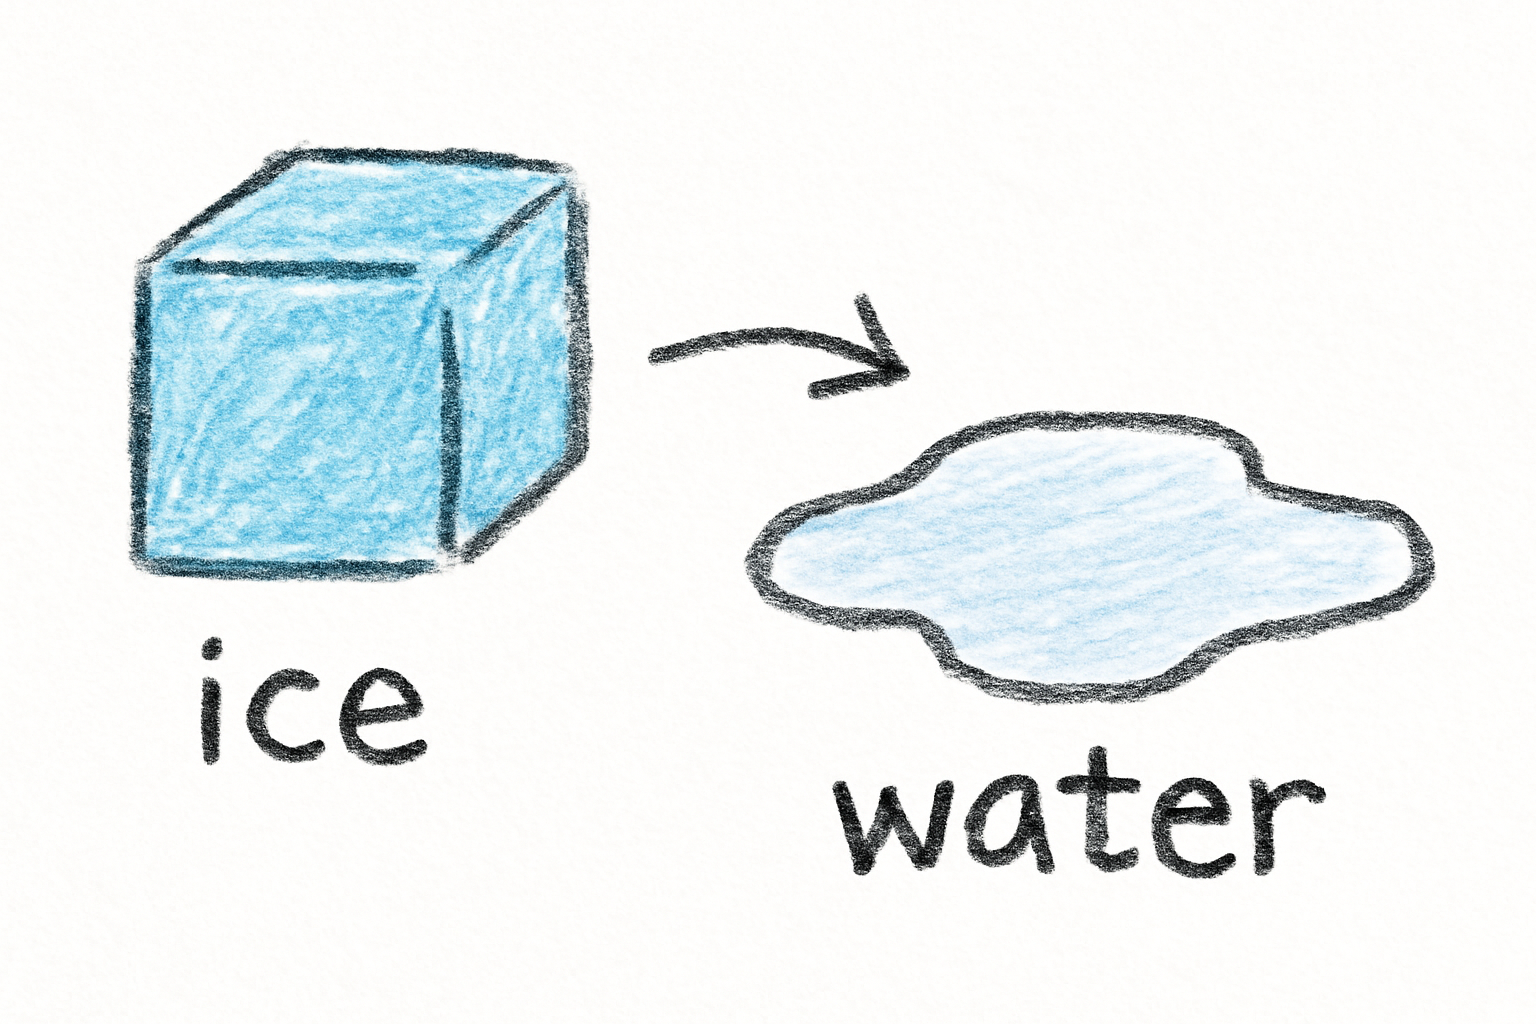 ice
water